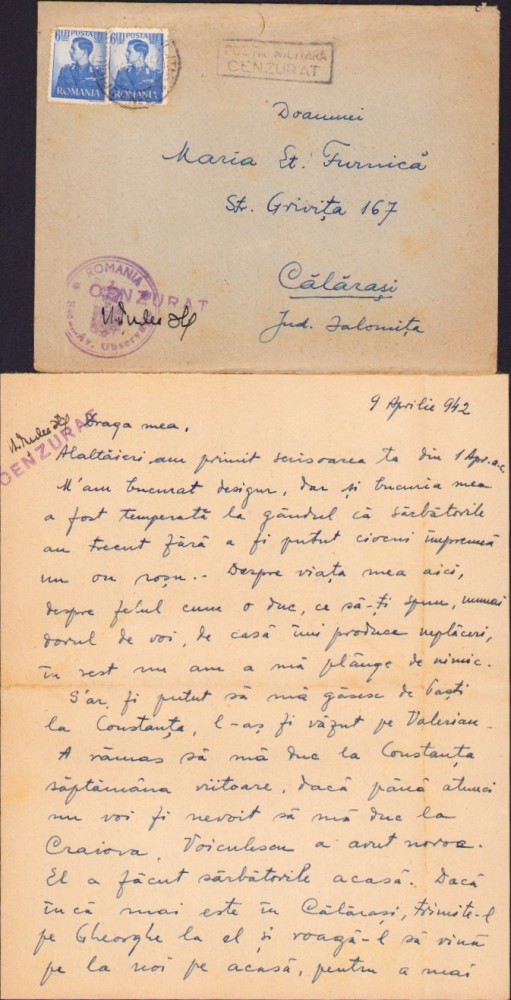 6 LEI POSTA
ROMANIA
6 LEI POSTA
ROMANIA
POSTA MILITARĂ
CENZURAT
Doamnei
Maria Șt. Furnică
Str. Grivița 167
Călărași
Jud. Ialomița
ROMANIA
CENZURAT
Av. Observ
9 Aprilie 942
CENZURAT
Draga mea,
Alaltăieri am primit scrisoarea ta din 1 Apr. a.c
M'am bucurat desigur, dar și bucuria mea
a fost temperată la gândul că sărbătorile
au trecut fără a fi putut ciocni împreună
un ou roșu.- Despre viața mea aici,
despre felul cum o duc, ce să-ți spun, numai
dorul de voi, de casă îmi produce neplăceri,
în rest nu am a mă plânge de nimic.
S'ar fi putut să mă găsesc de Paști
la Constanța, l-aș fi văzut pe Valerian-
A rămas să mă duc la Constanța
săptămâna viitoare, dacă până atunci
nu voi fi nevoit să mă duc la
Craiova. Voiculescu a avut noroc.
El a făcut sărbătorile acasă. Dacă
încă mai este în Călărași, trimite-l
pe Gheorghe la el și roagă-l să vină
pe la noi pe acasă, pentru a mai